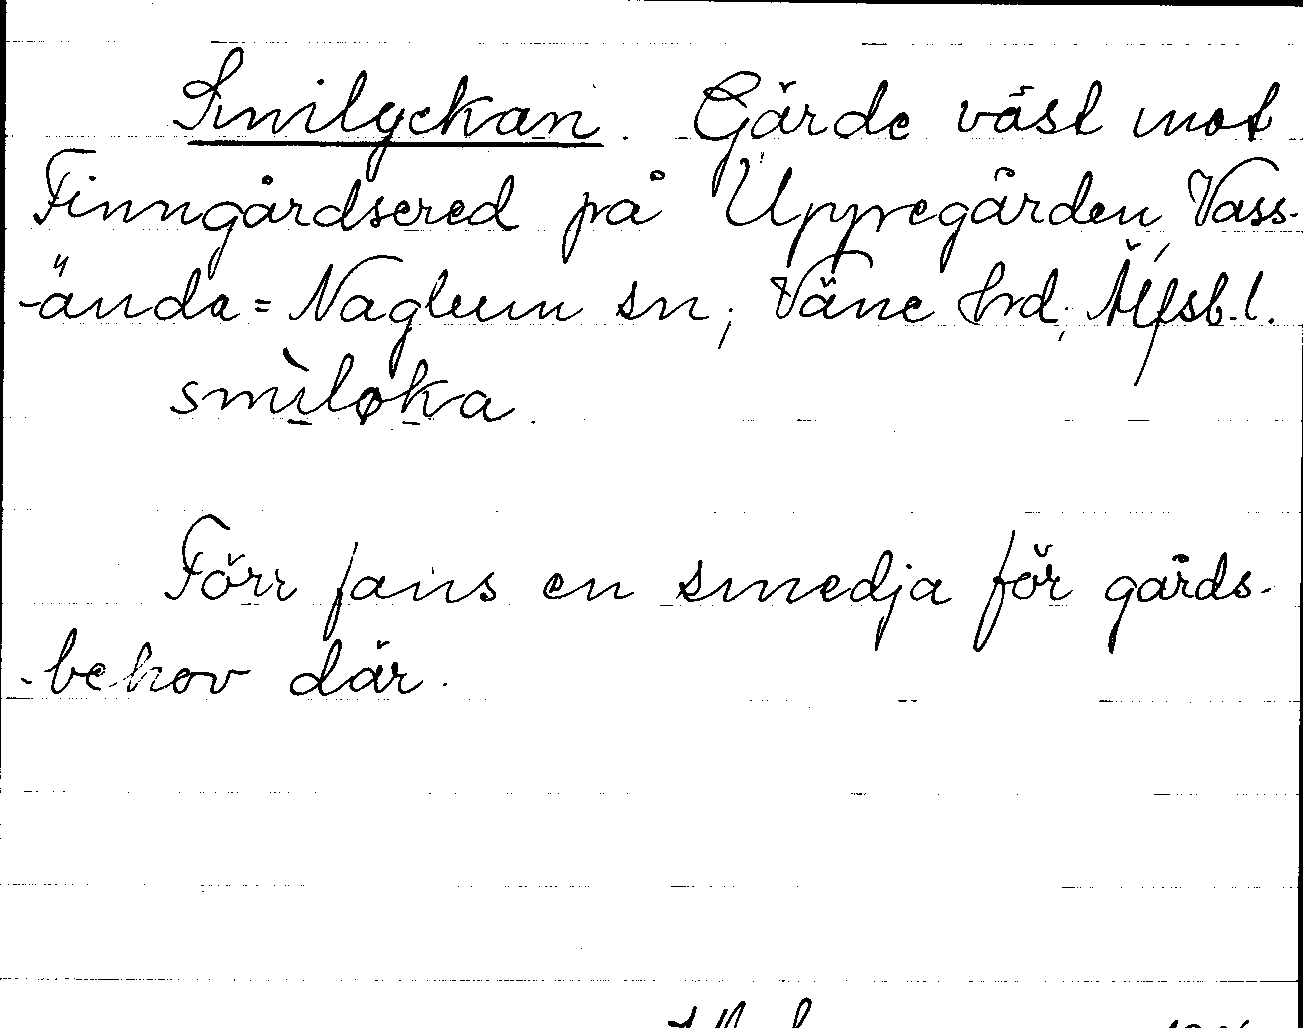 Smilyckan. Gärde väst mot
Finngårdsered på Uppegården, Vass-
-ända=Naglum sn, Väne hrd, Älfsb.l.
smìløka.
Förr fans en smedja för gårds-
-behov där.